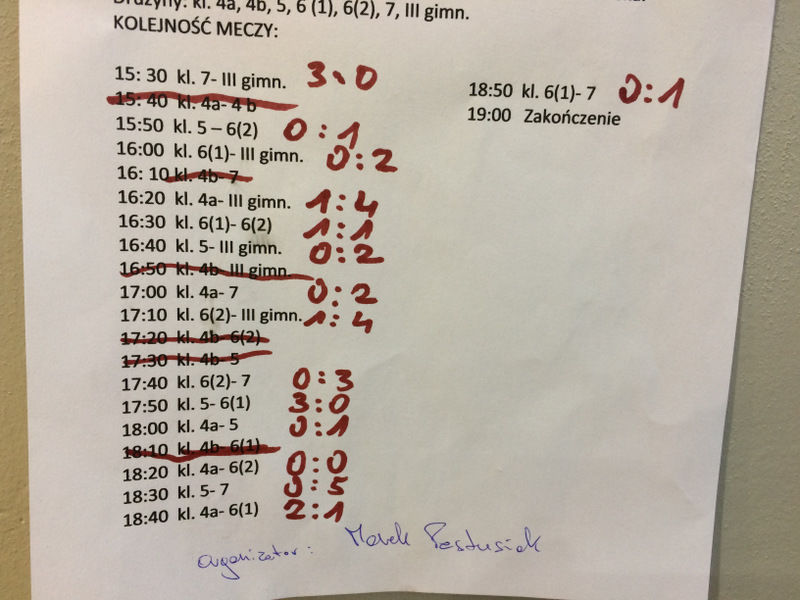 Drużyny: kl. 4a, 4b, 5, 6 (1), 6(2), 7, III gimn.
KOLEJNOŚĆ MECZY:
15: 30 kl. 7- III gimn. 3:0
15: 40 kl. 4a- 4 b
15:50 kl. 5 – 6(2) 0:1
16:00 kl. 6(1)- III gimn. 0:2
16: 10 kl. 4b- 7
16:20 kl. 4a- III gimn. 1:4
16:30 kl. 6(1)- 6(2) 1:1
16:40 kl. 5- III gimn. 0:2
16:50 kl. 4b- III gimn.
17:00 kl. 4a- 7 0:2
17:10 kl. 6(2)- III gimn. 1:4
17:20 kl. 4b- 6(2)
17:30 kl. 4b- 5
17:40 kl. 6(2)- 7 0:3
17:50 kl. 5- 6(1) 3:0
18:00 kl. 4a- 5 0:1
18:10 kl. 4b- 6(1)
18:20 kl. 4a- 6(2) 0:0
18:30 kl. 5- 7 0:5
18:40 kl. 4a- 6(1) 2:1
18:50 kl. 6(1)- 7 0:1
19:00 Zakończenie
organizator: Marek Pastusiak